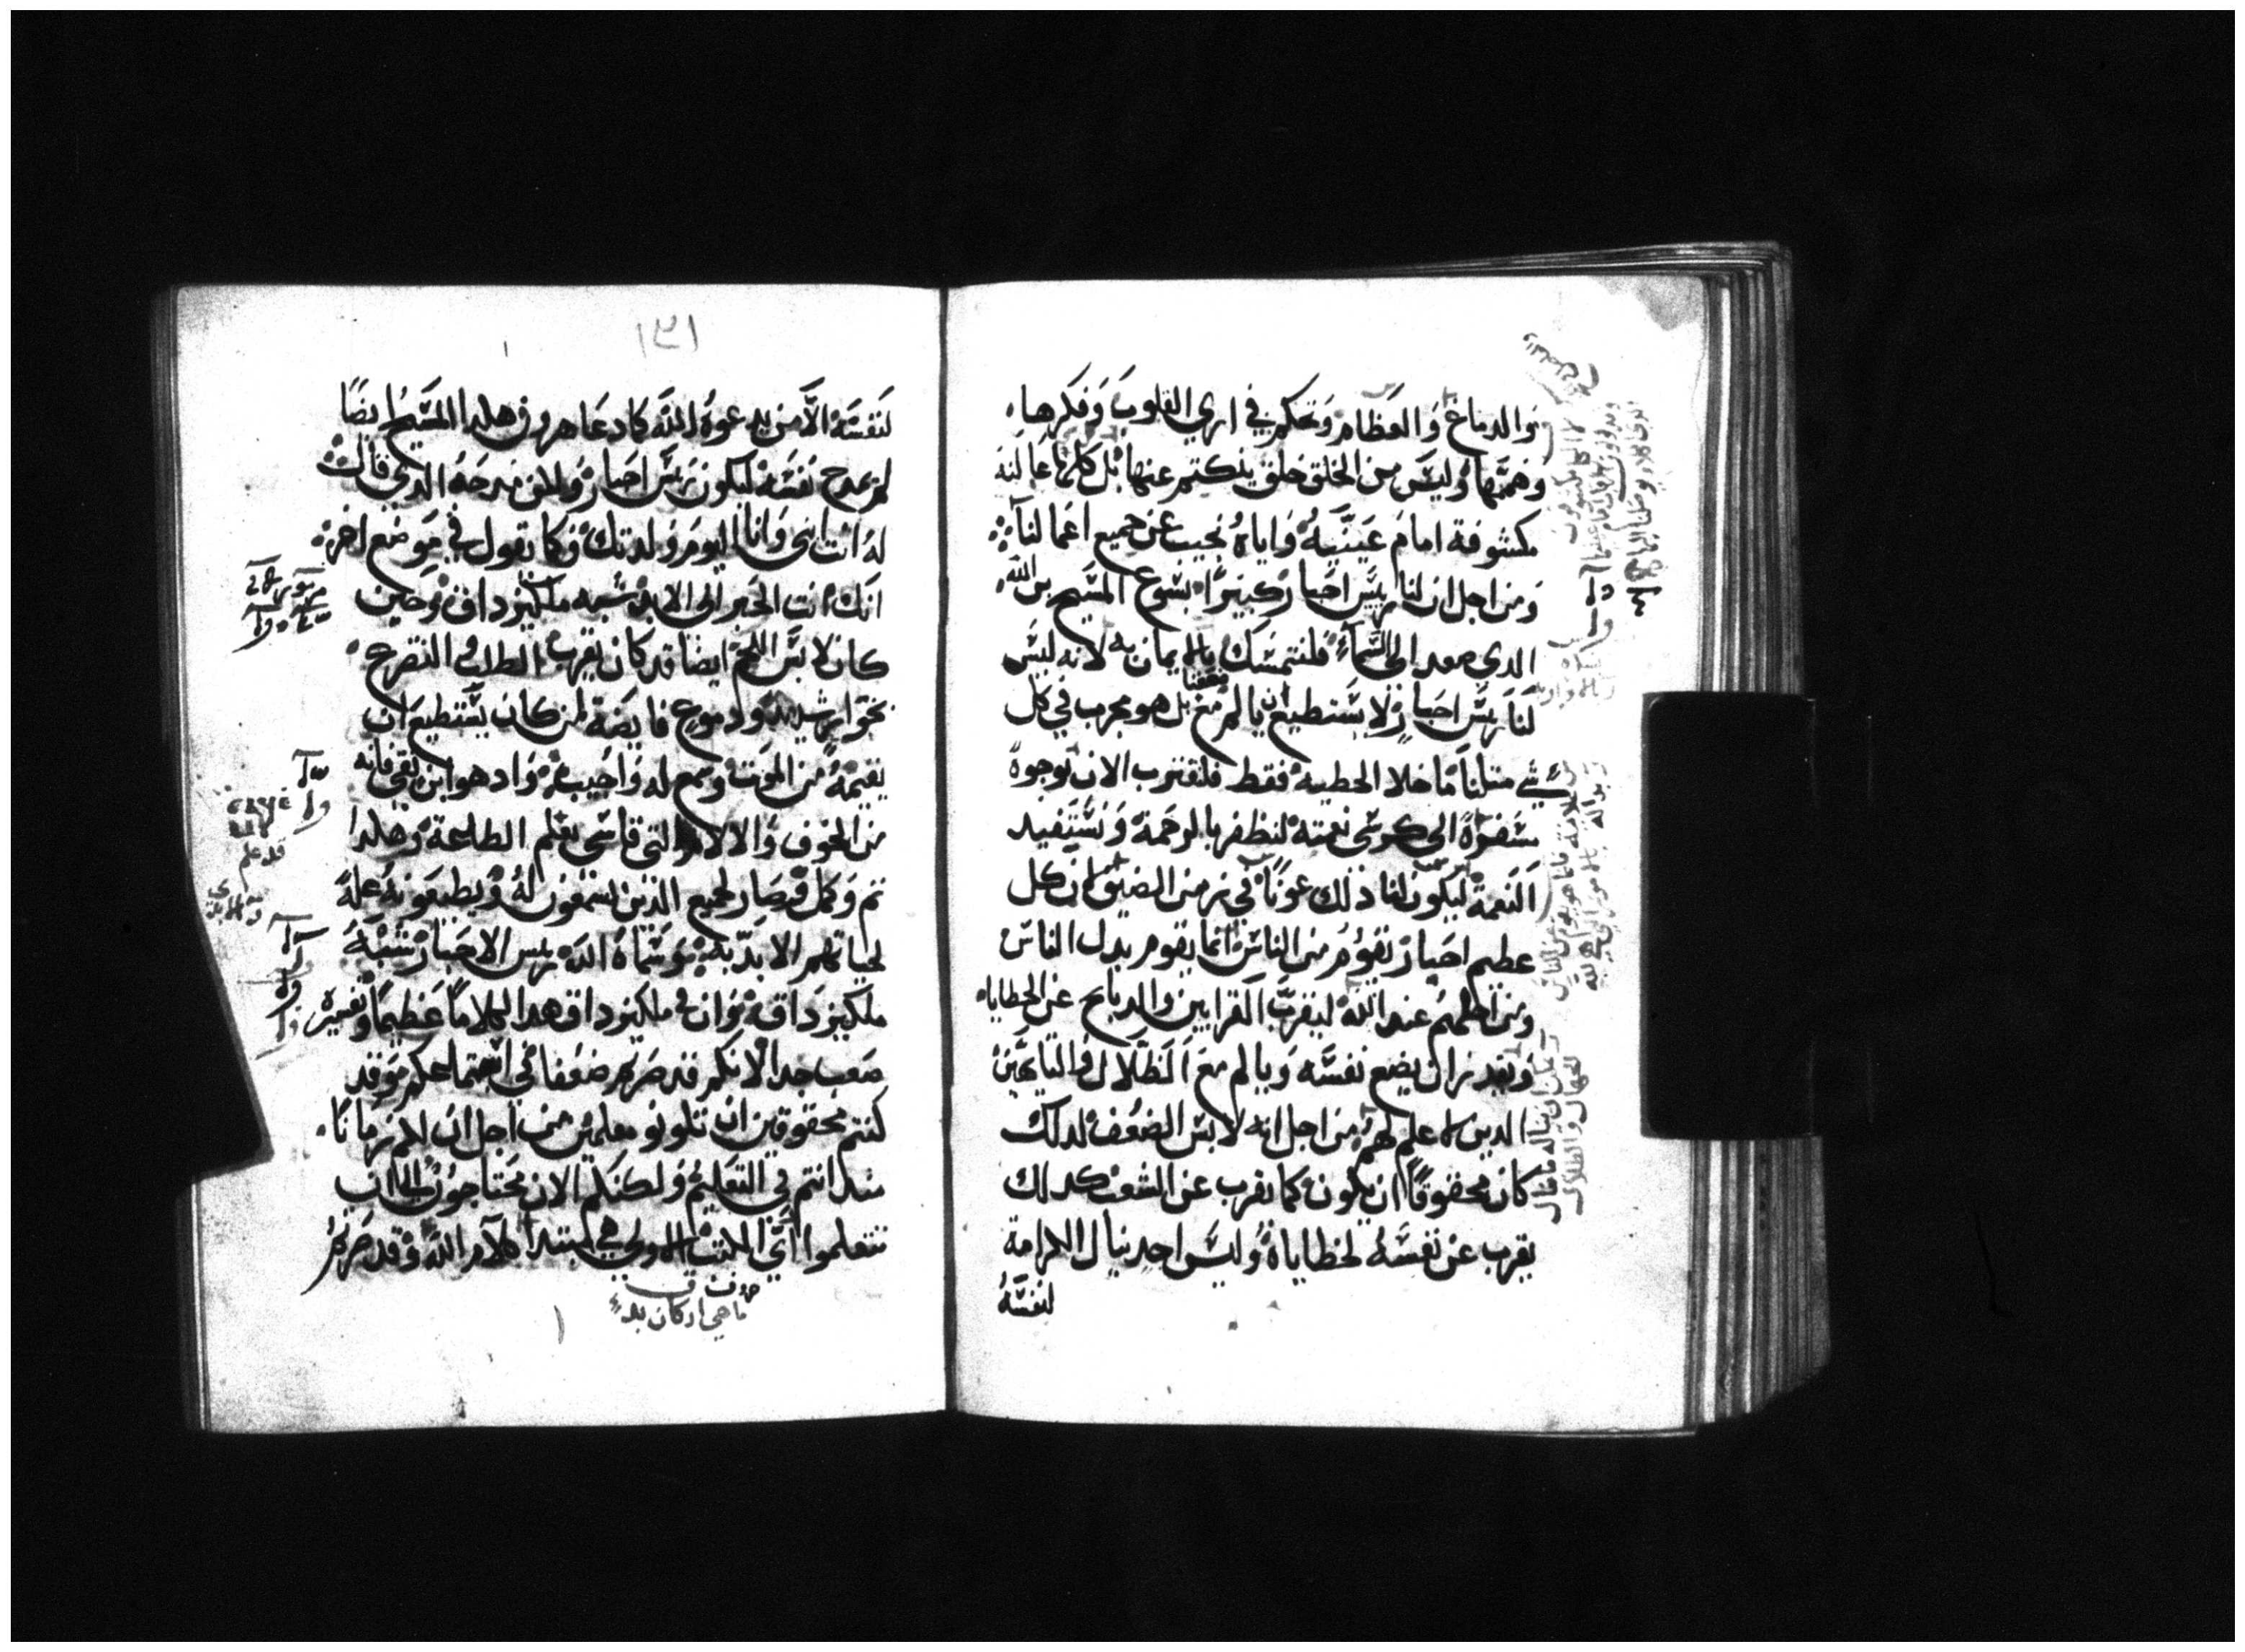 والدماغ والعظام وتحكم في اري القلوب وفكرها
وهمتها وليس من الخلق خلق ينكتم عنها بل كلها عالنه
مكشوفة امام عينيه واياه نجيب عن جميع اعمالنا
ومن اجل ان لنا ريس احبار كبيرا يشوع المسيح بن الله
الدي صعد الى السماء فلنتمسك بالايمان به لانه ليس
لنا ريس احبار لا يستطيع ان يالم مع ضعفنا بل هو مجرب في كل
شي مثلنا ما خلا الخطية فقط فلنقترب الان بوجوه
سفرة الى كرسي نعمته لنظفر بالرحمة ونستفيد
النعمة ليكون لنا ذلك عونا في زمن الضيق ان كل
عظيم احبار يقوم من الناس انما يقوم بدل الناس
ومن اجلهم عند الله ليقرب القرابين والدبايح عن الخطايا
ويقدر ان يضع نفسه ويالم مع الضلال والتايهين
الدين لا علم لهم من اجل انه لابس الضعف لدلك
كان محقوقا ان يكون كما يقرب عن الشعب كدلك
يقرب عن نفسه لخطاياه وليس احد ينال الكرامة
لنفسه
١٣١
لنفسه الا من يدعوه الله كما دعا هرون هكدا المسيح ايضا
لم يمدح نفسه ليكون ريس احبار ولكن مدحه الدي قال
له انت ابني وانا اليوم ولدتك وكما يقول في موضع اخر
انك انت الحبر الى الابد شبه ملكيزداق وحين
كان لابس اللحم ايضا قد كان يقرب الطلب والتضرع
بجوار شديد ودموع فايضة لمن كان يستطيع ان
يقيمه من الموت وسمع له واجيب واد هو ابن تقي فانه
من الخوف والالام التي قاسى تعلم الطاعة وهكدا
تم وكمل فصار لجميع الذين يسمعون له ويطيعونه علة
لحياتهم الابدية وسماه الله ريس الاحبار شبه
ملكيزداق وان في ملكيزداق هدا لكلاما عظيما وتفسيره
صعب جدا لانكم قد صرتم ضعفا في استماعكم وقد
كنتم محقوقين ان تكونوا معلمين من اجل ان لكم زمانا
مند انتم في التعليم ولكنكم الان محتاجون الى ان
تتعلموا اي الكتب الاولى هي لمبتدا كلام الله وقد صرتم
ما هي اركان بدء